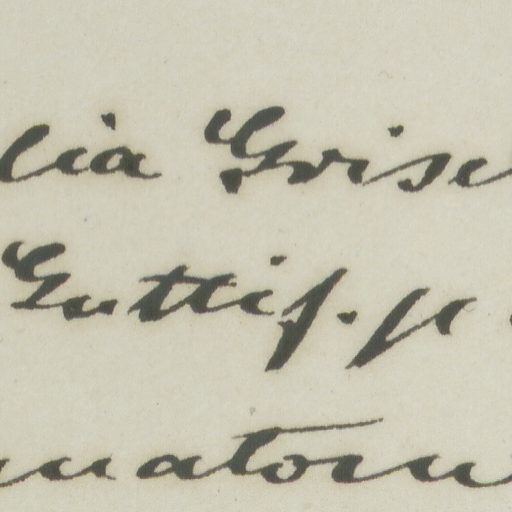 lia Grise
Guttif. p
natoru